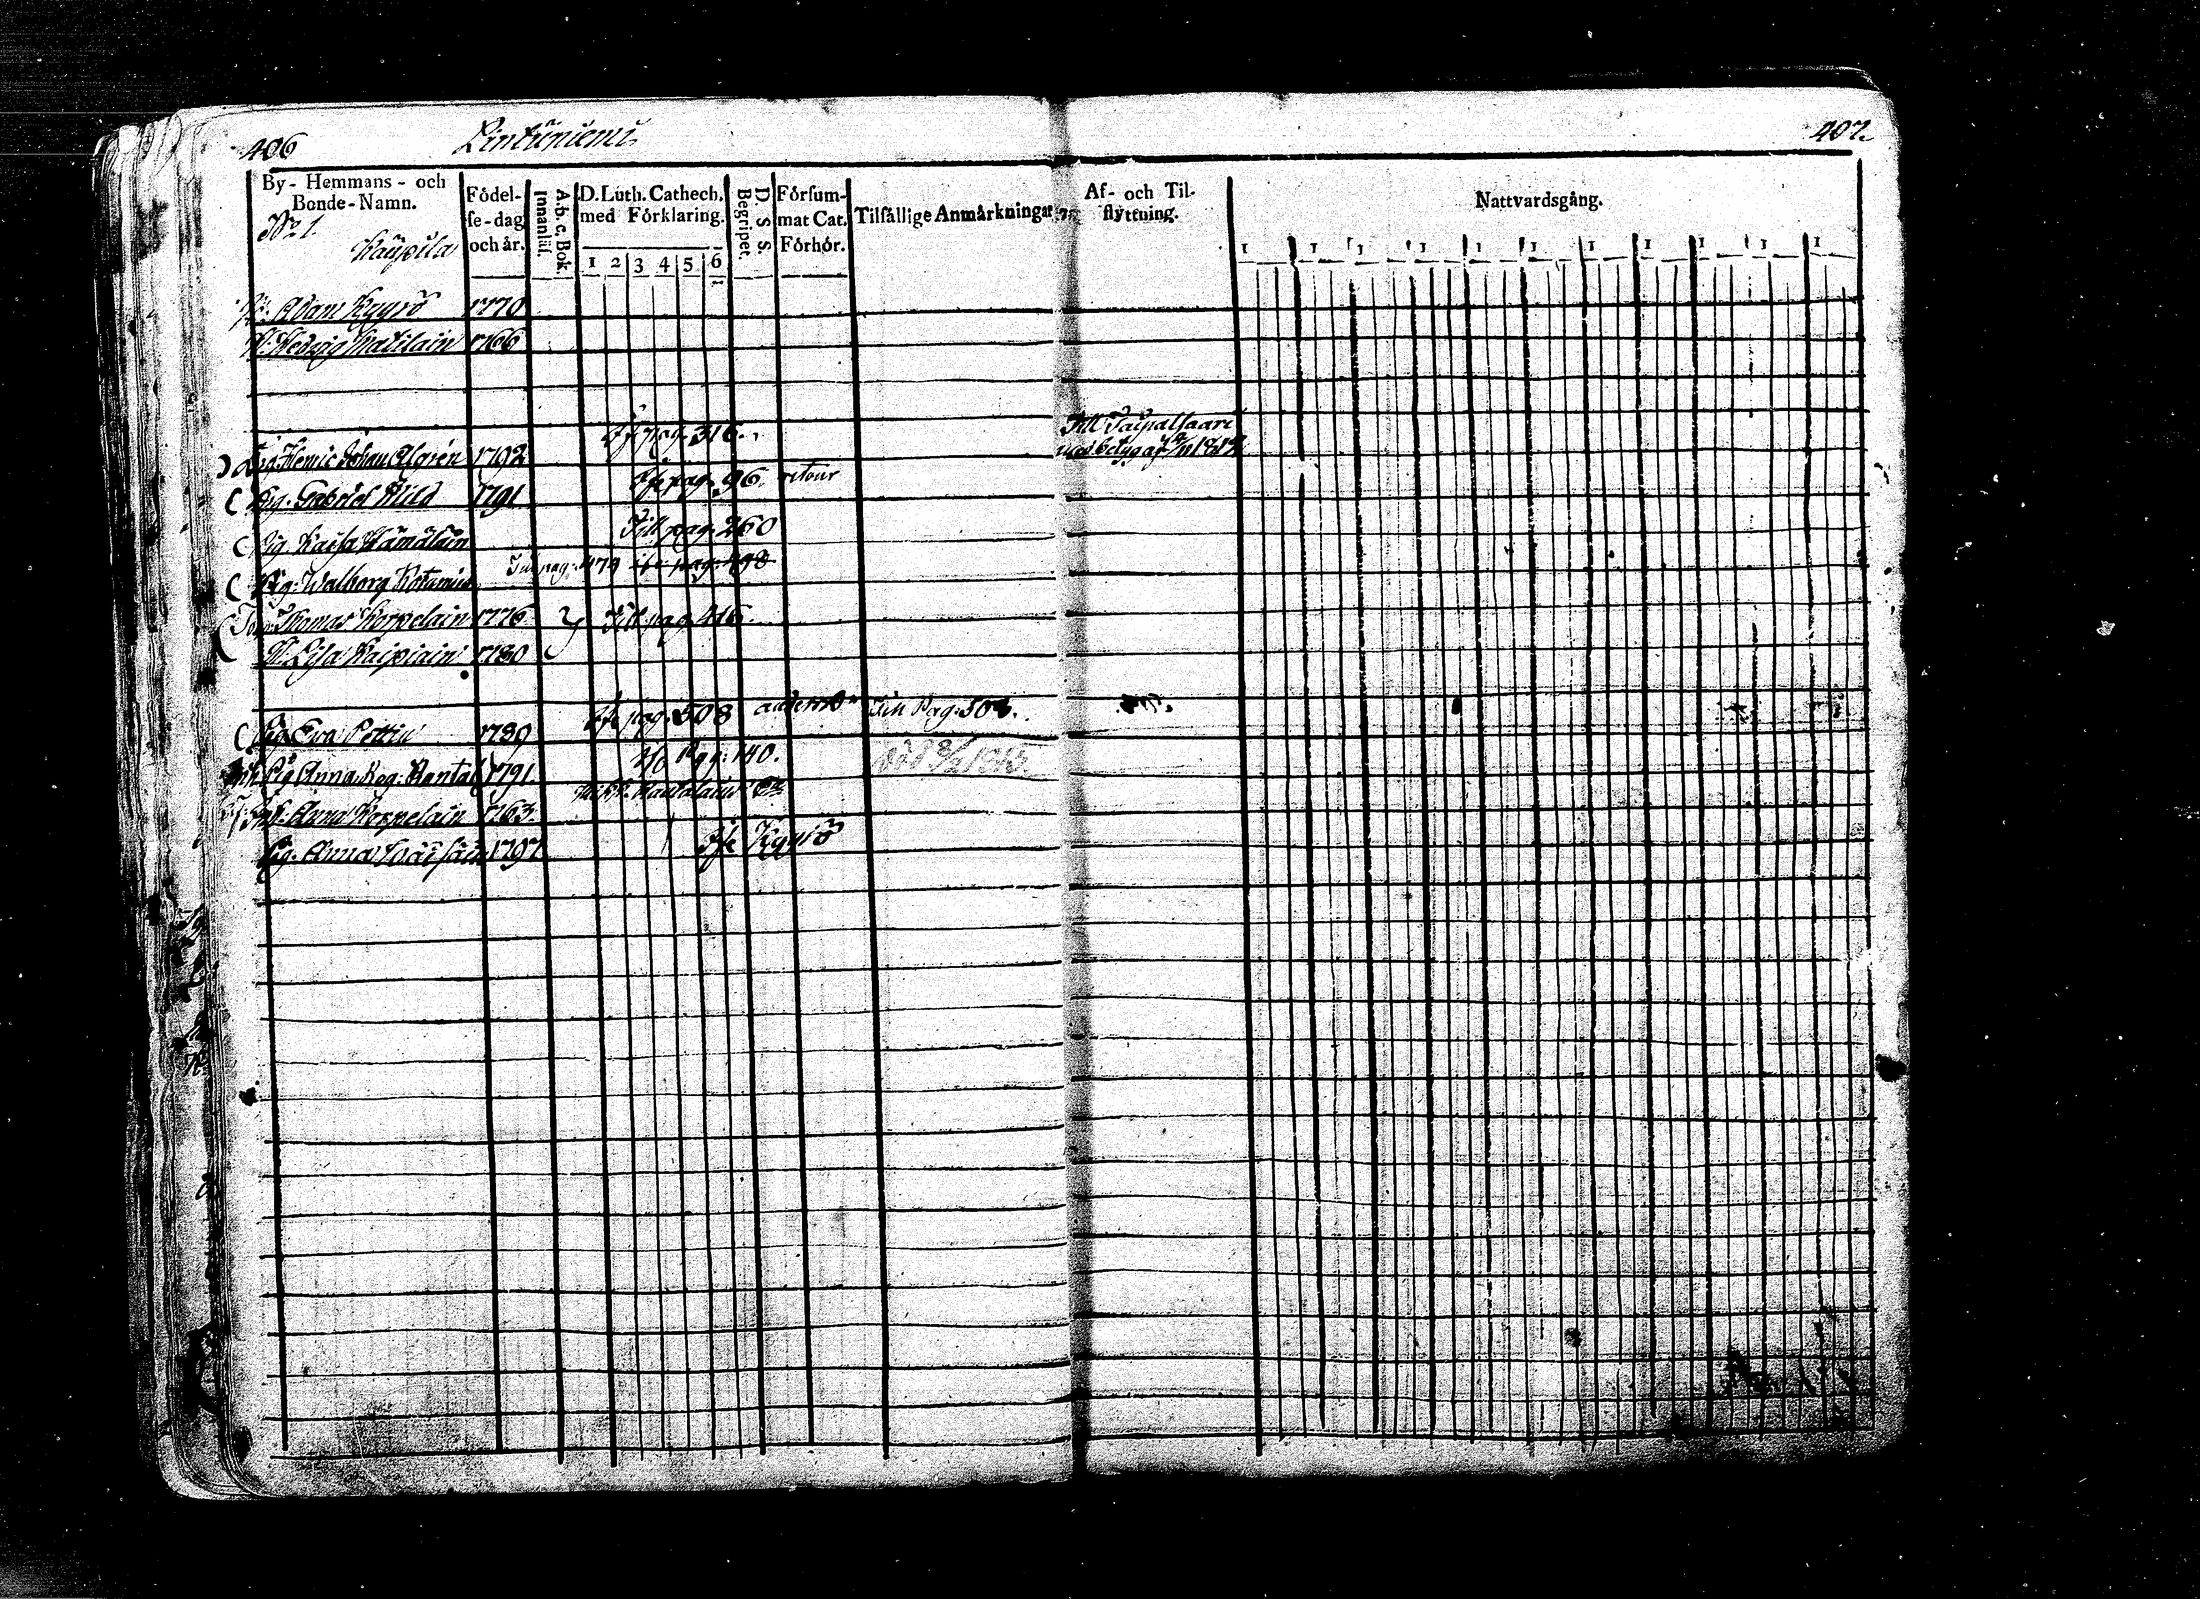 406
Lintuniemi
407.
By- Hemmans- och Bonde-Namn.
Födel-se-dag och år.
A. b. c. Bok. Innanläs.
D. Luth. Cathech. med Förklaring.
1 2 3 4 5 6
D. S. S. Begripet.
Försum-mat Cat. Förhör.
Tilfällige Anmärkningar
Af- och Til-flyttning.
Nattvardsgång.
1 1 1 1 1 1 1 1 1 1 1
No 1.
Kaupila
Adam Kyyrö 1770
H: Hedvig Matilain 1766
Henric Johan Algren 1792 pag. 316. Till Taipalsaari
Gabriel Mild 1791 pag. 96. retour
Pig. Kaisa Hämäläin Till pag. 260
Pig. Walborg pag. 479 pag. 498
Thomas Koppelain 1776. Till pag. 416.
H. Lisa Kaipiain 1780
Pig. Eva Pettin 1789 pag. 508 Till Pag. 508.
Pig Anna Reg: Rantal 1791. Pag: 140.
Anna Koppelain 1763.
Pig. Anna 1797 Kyyrö